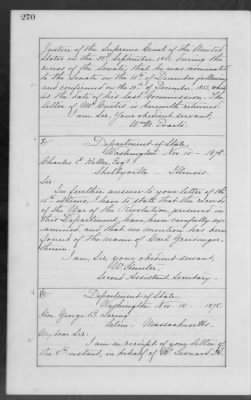 270
Justice of the Supreme Court of the United
States on the 20th September, 1851, during the
recess of the Senate; that he was nominated
to the Senate on the 11th of December following
and confirmed on the 20th of December, 1851, which
is the date of his last Commission. The
letter of Mr. Curtis is herewith returned.
I am, Sir, Your obedient servant,
Wm. M. Evarts.
Department of State,
Washington Nov. 15 - 1878.
Charles E. Keller, Esq.
Shelbyville - Illinois.
Sir:
In further answer to your letter of the
15th ultimo, I have to state that the records
of the War of the Revolution, preserved in
this Department, have been carefully ex-
amined, and that no mention has been
found of the name of Carl
therein.
I am, Sir, your obedient servant,
W. Hunter,
Second Assistant Secretary.
Department of State,
Washington Nov. 15 - 1878.
Hon. George B. Loring
Salem - Massachusetts.
My dear Sir:
I am in receipt of your letter of
the 8th instant, in behalf of Mr. Leonard A.